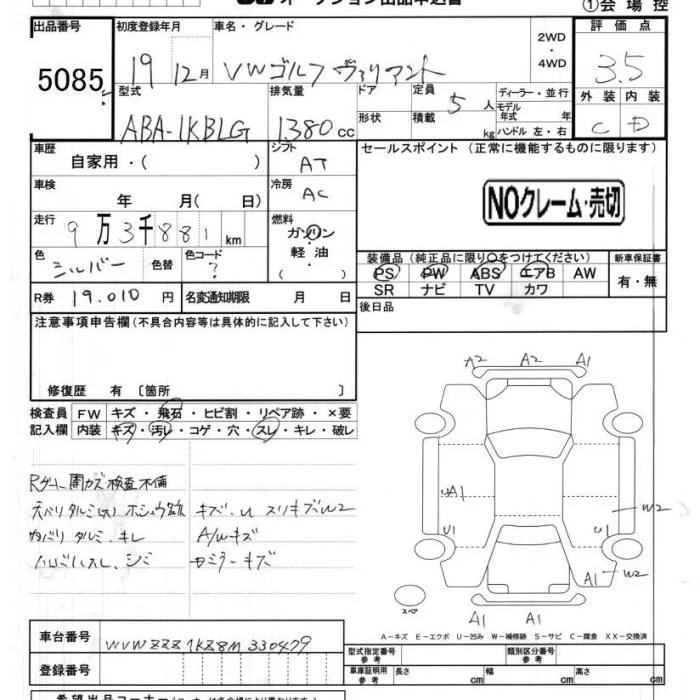 オークション出品申込書
①会場控
出品番号 初度登録年月 車名・グレード 評価点
5085 19 12月 VWゴルフ ヴァリアント 2WD ・ 4WD 3.5
型式 排気量 ドア 定員 5人 ディーラー・並行 外装 内装
ABA-1KBLG 1380cc 形状 積載 kg モデル年式 年 C D
ハンドル 左・右
車歴 自家用・( ) シフト AT セールスポイント (正常に機能するものに限ります)
車検 年 月( 日) 冷房 AC NOクレーム・売切
走行 9万3千881km 燃料 ガソリン
軽油
( )
色 シルバー 色替 色コード ?
装備品 (純正品に限り○をつけてください) 新車保証書
PS PW ABS エアB AW 有・無
SR ナビ TV カワ
R券 19.010円 名変通知期限 月 日 後日品
注意事項申告欄 (不具合内容等は具体的に記入して下さい)
修復歴 有 〔箇所 〕
検査員 FW キズ・飛石・ヒビ割・リペア跡・×要
記入欄 内装 キズ・汚レ・コゲ・穴・スレ・キレ・破レ
A2 A2 A1
UA1 W2
U1 U1
A1 W2
スペア
A1 A1
検査不備
天バリタルミ(大) キズ・U スリキズW2
内バリ タルミ、キレ A/Wキズ
シミ ミラーキズ
A-キズ E-エクボ U-凹み W-補修跡 S-サビ C-腐食 XX-交換済
車台番号 WVWZZZ1KZ8M330479
型式指定番号 参考 類別区分番号 参考
登録番号 車庫証明用 参考 長さ cm 幅 cm 高さ cm